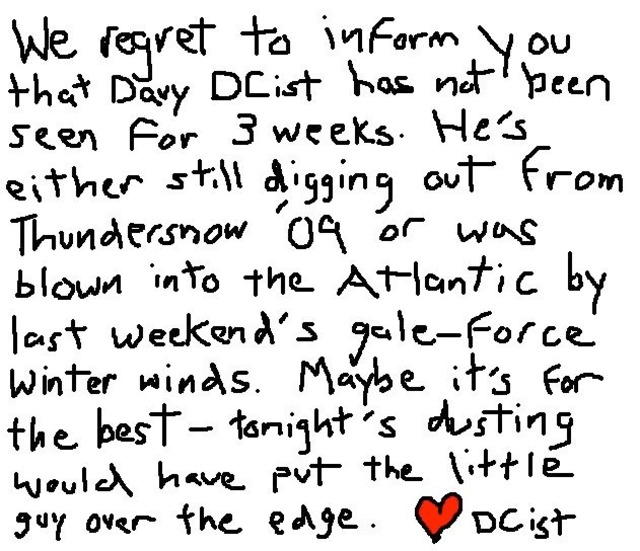 We regret to inform you
that Davy DCist has not been
seen for 3 weeks. He's
either still digging out from
Thundersnow '09 or was
blown into the Atlantic by
last weekend's gale-force
winter winds. Maybe it's for
the best - tonight's dusting
would have put the little
guy over the edge. ♥ DCist